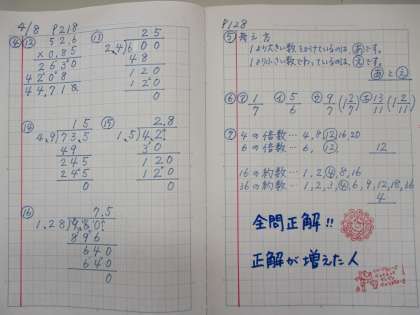 4/8 P218
④ ⑫ 526
×0.85
2630
4208
447.10
⑬ 25
2.4)600
48
120
120
0
⑭ 15
4.9)73.5
49
245
245
0
⑮ 2.8
1.5)4.2
30
120
120
0
⑯ 7.5
1.28)9.60
896
640
640
0
P128
⑤ 考え方
1より大きい数をかけているのは、あです。
1より小さい数でわっているのは、えです。
あとえ
⑥ ⑦ 1/7 ① 5/6 ⑦ 9/7 (1 2/7) ① 13/11 (1 2/11)
⑦ 4の倍数… 4,8,⑫,16,20
6の倍数… 6,⑫
12
16の約数… 1,2,④,8,16
36の約数… 1,2,3,④,6,9,12,18,36
4
全問正解!!
正解が増えた人